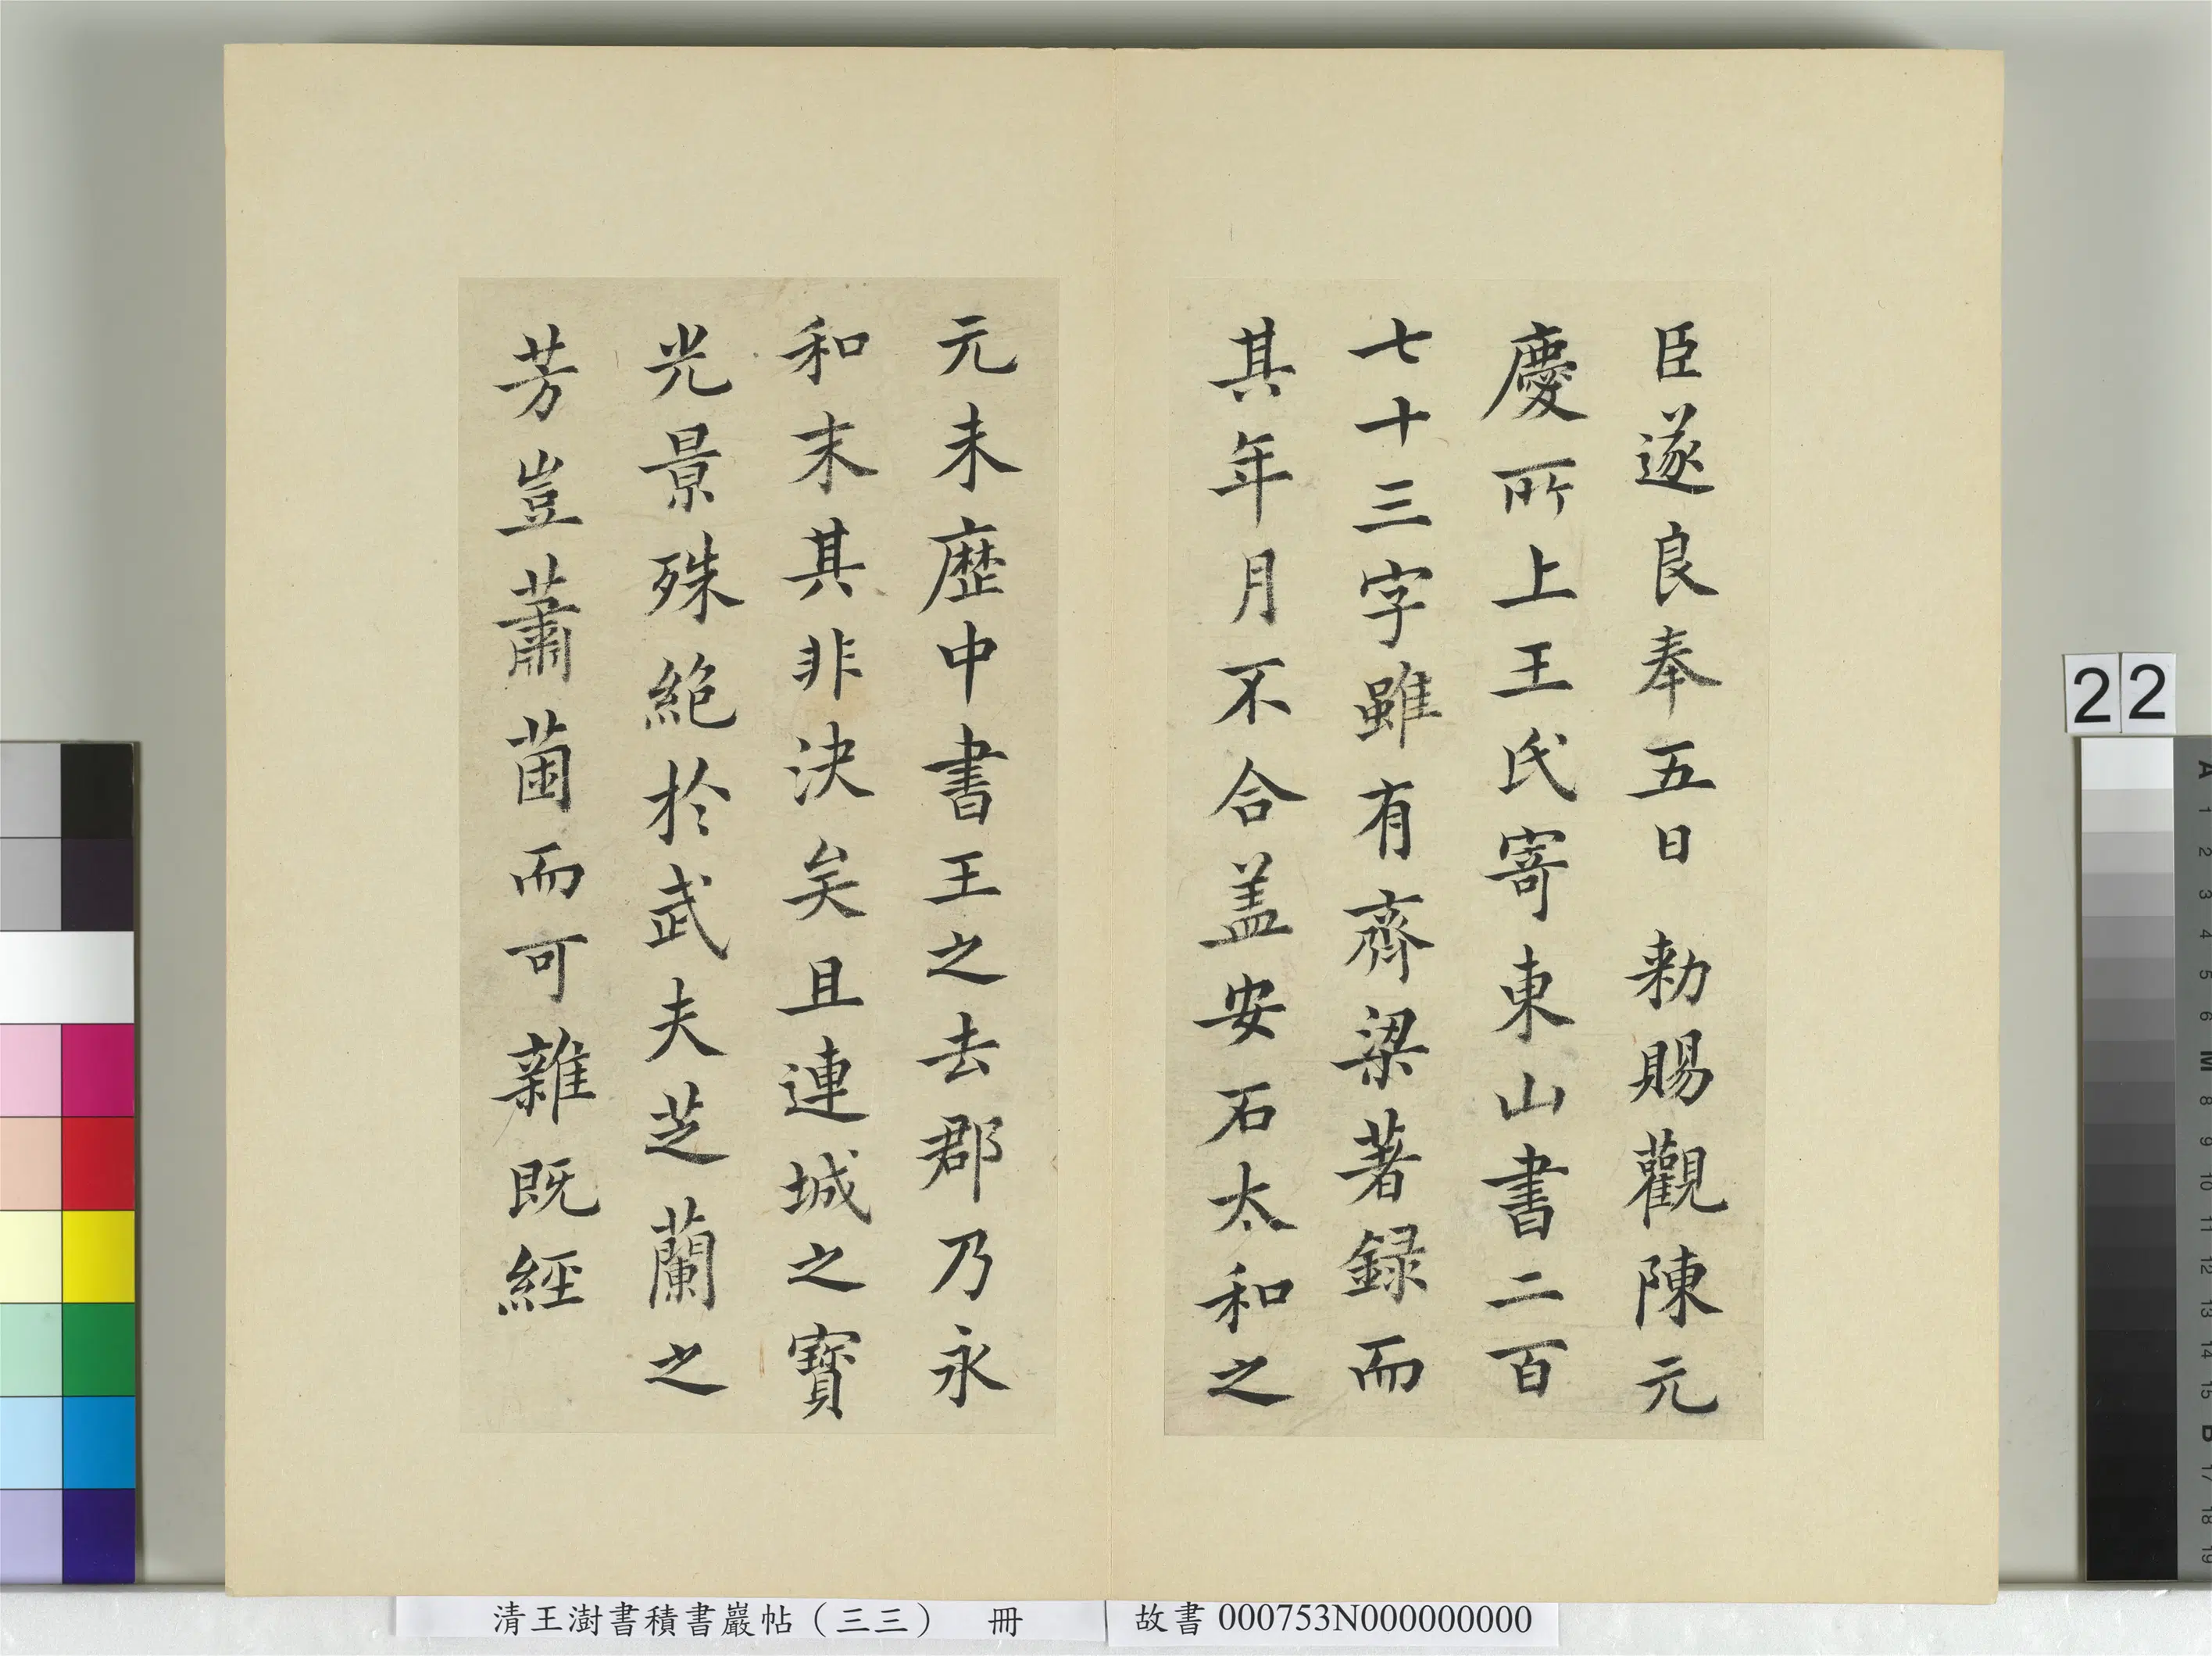 臣遂良奉五日 勑賜觀陳元
慶所上王氏寄東山書二百
七十三字雖有齊梁著録而
其年月不合盖安石太和之
元未歷中書王之去郡乃永
和末其非決矣且連城之寶
光景殊絕於武夫芝蘭之
芳豈蕭菌而可雜既經
22
清王澍書積書巖帖（三三） 冊
故書 000753N000000000
A
1
2
3
4
5
6
M
8
9
10
11
12
13
14
15
B
17
18
19